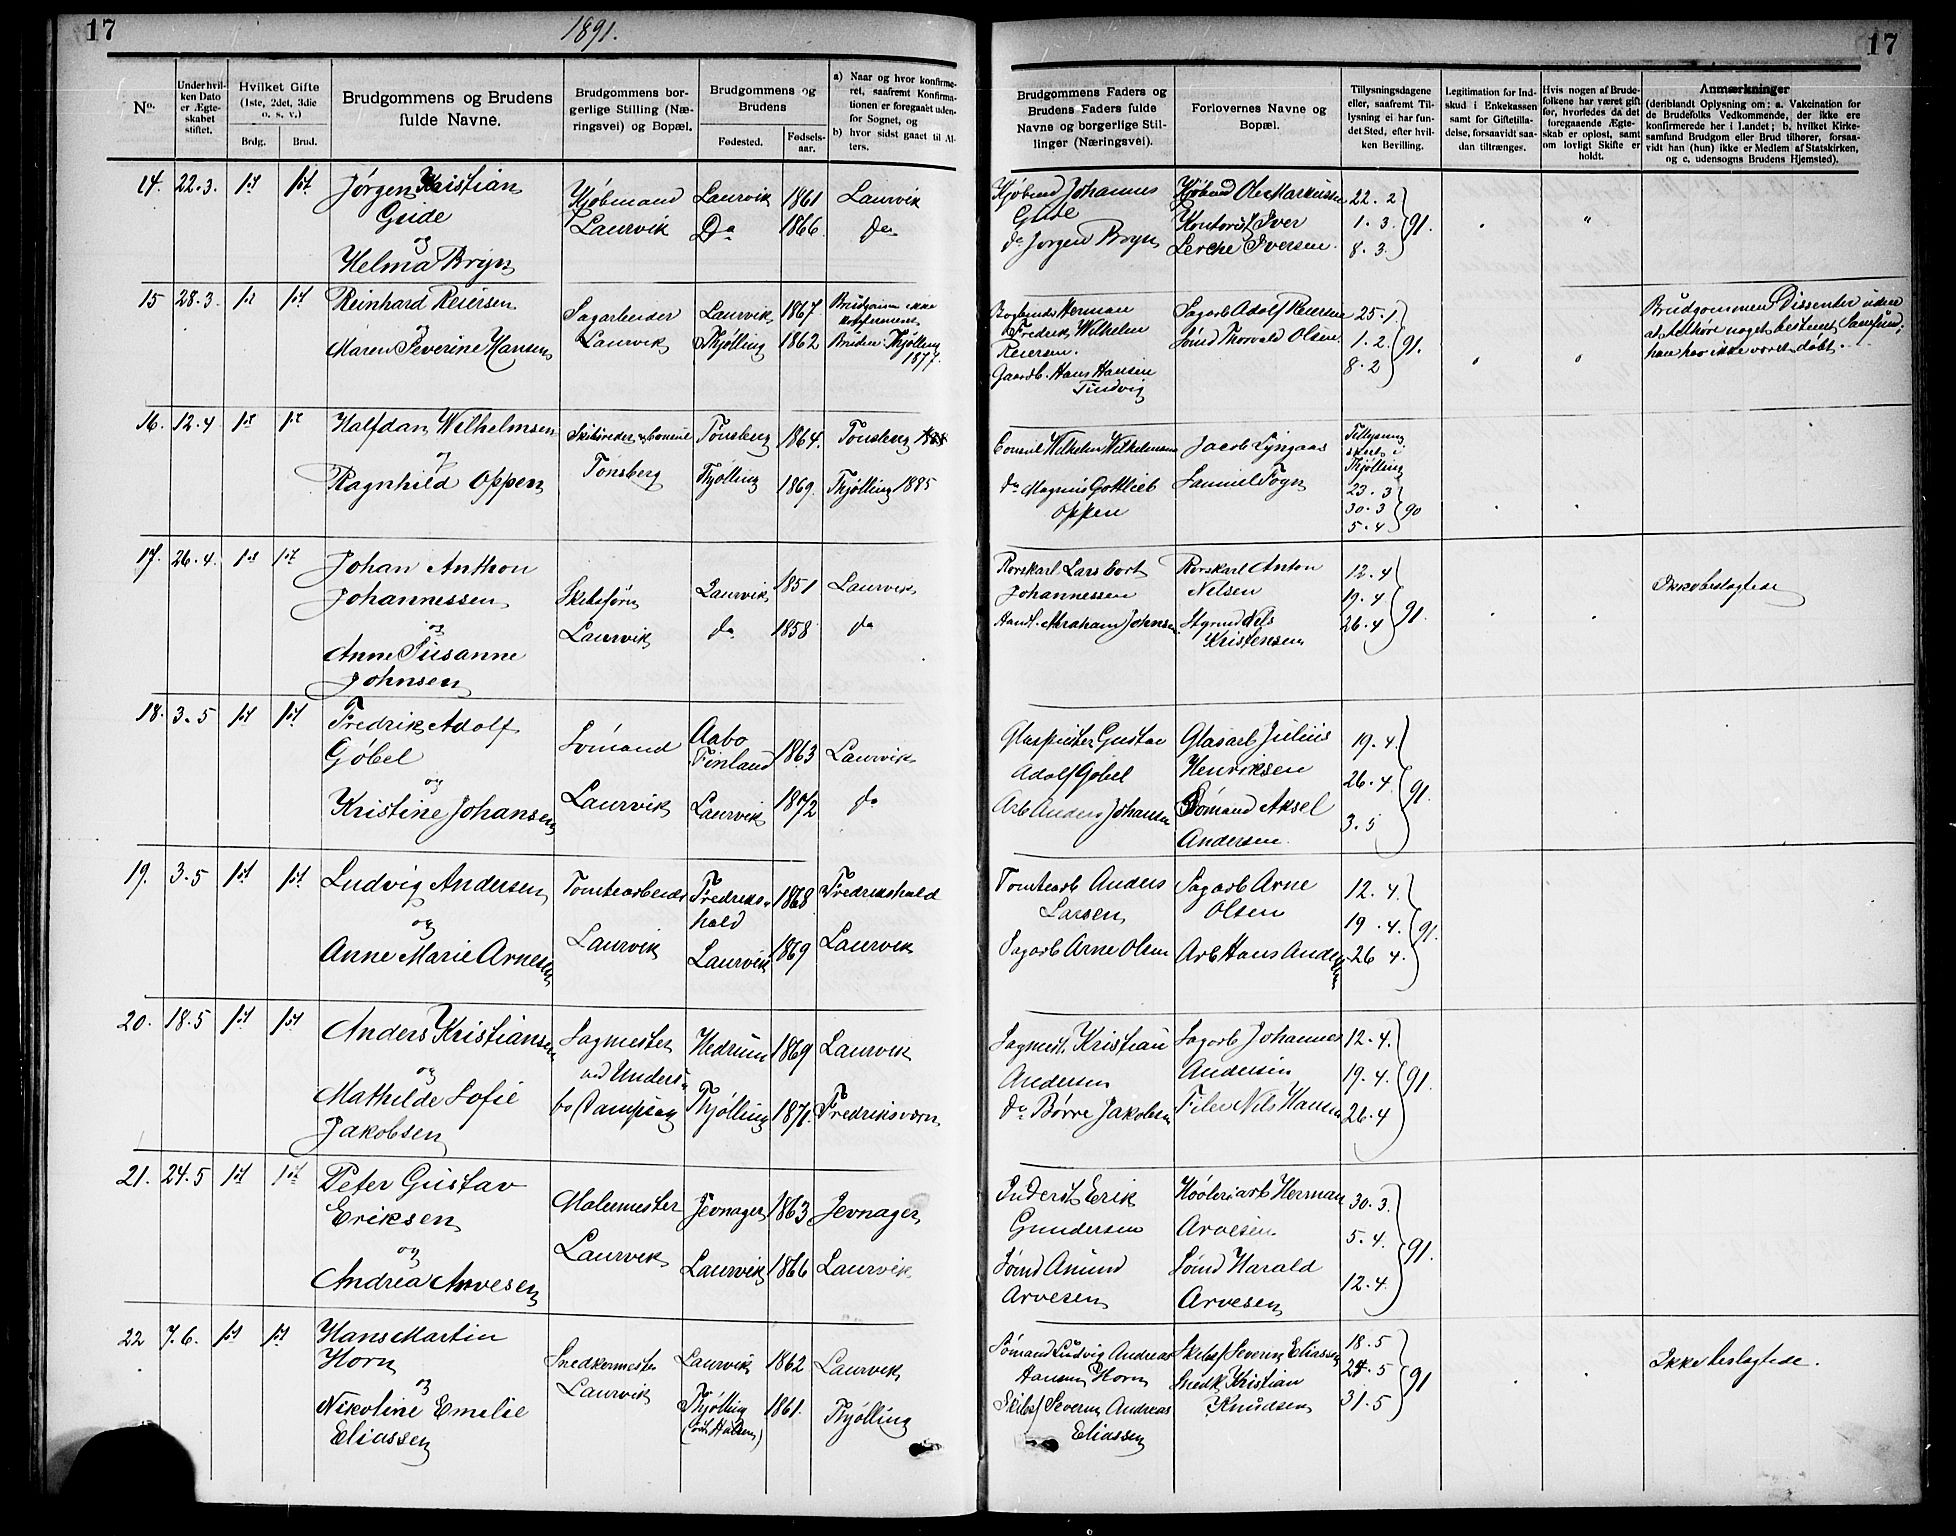 17
1891.
17
No.
Under hvilken Dato er Ægteskabet stiftet.
Hvilket Gifte (1ste, 2det, 3die o. s. v.)
Brdg.
Brud.
Brudgommens og Brudens fulde Navne.
Brudgommens borgerlige Stilling (Næringsvei) og Bopæl.
Brudgommens og Brudens
Fødested.
Fødselsaar.
a) Naar og hvor konfirmeret, saafremt Konfirmationen er foregaaet udenfor Sognet, og
b) hvor sidst gaaet til Alters.
Brudgommens Faders og Brudens Faders fulde Navne og borgerlige Stillinger (Næringsvei).
Forlovernes Navne og Bopæl.
Tillysningsdagene eller, saafremt Tillysning ei har fundet Sted, efter hvilken Bevilling.
Legitimation for Indskud i Enkekassen samt for Giftetilladelse, forsaavidt saadan tiltrænges.
Hvis nogen af Brudefolkene har været gift før, hvorledes da det foregaaende Ægteskab er opløst, samt om lovligt Skifte er holdt.
Anmærkninger
(deriblandt Oplysning om: a. Vakcination for de Brudefolks Vedkommende, der ikke ere konfirmerede her i Landet; b. hvilket Kirkesamfund Brudgom eller Brud tilhører, forsaavidt han (hun) ikke er Medlem af Statskirken, og c. udensogns Brudens Hjemsted).
14. 22.3. 1st 1st Jørgen Kristian
Gude
og
Helma Bryn
Kjøbmand
Laurvik
Laurvik 1861 Laurvik
Do 1866. do
Kjøbmd Johannes
Gude
do Jørgen Bryn
Kjøbmd Ole Markussen
Kontorist Iver
Lerche Iversen.
22.2
1.3
8.3.
91.
15 28.3. 1st 1st Reinhard Reiersen
og
Maren Severine Hansen
Sagarbeider
Laurvik
Laurvik 1867 Brudgom ikke
konfirmeret
Thjølling 1862 Bruden: Thjølling
1877.
Herman
Fredrik Wilhelm
Reiersen.
Gaardb. Hans Hansen
Tindvig
Sagarb Adolf Reiersen
Sømd Thorvald Olsen.
25.1.
1.2.
8.2
91.
Brudgommen Dissenter uden
at tilhøre noget bestemt Samfund;
han har ikke været døbt.
16. 12.4 1st 1st Halfdan Wilhelmsen
og
Ragnhild Oppen
Skibsreder og Consul
Tønsberg
Tønsberg 1864. Tønsberg
Thjølling 1869. Thjølling 1885
Consul Wilhelm Wilhelmsen
do Magnus Gottlieb
Oppen
Jacob Lyngaas
Samuel Foyn
Tillysning
sket i
Thjølling
23.3
30.3
5.4
90
17. 26.4. 1st 1st Johan Anthon
Johannessen
og
Anne Susanne
Johnsen
Skibsfører
Laurvik
Laurvik 1851 Laurvik
do 1858 do
Rorskarl Lars Cort
Johannessen
Handl. Abraham Johnsen
Rorskarl Anton
Nelsen
Styrmd Nils
Kristensen
12.4
19.4
26.4
91.
Ikke beslægtede
18. 3.5 1st 1st Fredrik Adolf
Gøbel
og
Kristine Johansen
Sømand
Laurvik
Aabo
Finland 1863 Laurvik
Laurvik 1872 do
Glaspuster Gustav
Adolf Gøbel
Arb Anders Johansen
Glasarb Julius
Henriksen
Sømand Aksel
Andersen.
19.4.
26.4
3.5
91.
19. 3.5 1st 1st Ludvig Andersen
og
Anne Marie Arnesen
Tomtearbeider
Laurvik
Fredriks-
hald 1868 Fredrikshald
Laurvik 1869 Laurvik
Tomtearb Anders
Larsen
Sagarb Arne Olsen
Sagarb Arne
Olsen
Arb Hans Andersen
12.4.
19.4.
26 4.
91.
20. 18.5 1st 1st Anders Kristiansen
og
Mathilde Sofie
Jakobsen
Sagmester
ved Unders-
bo Dampsag
Hedrum 1869 Laurvik
Thjølling 1871. Fredriksværn
Sagmest. Kristian
Andersen
do Børre Jakobsen
Sagarb Johannes
Andersen
Filer Nils Hansen
12.4.
19.4.
26.4
91.
21. 24.5 1st 1st Peter Gustav
Eriksen
og
Andrea Arvesen
Malermester
Laurvik
Jevnager 1863 Jevnager
Laurvik 1866 Laurvik
Inderst Erik
Gundersen
Sømd Amund
Arvesen
Høvleriarb Herman
Arvesen
Sømd Harald
Arvesen
30.3.
5.4.
12.4.
91.
22 7.6. 1st 1st Hans Martin
Horn
og
Nikoline Emilie
Eliassen
Snedkermester
Laurvik
Laurvik 1862 Laurvik
Thjølling 1861. Thjølling
Sømand Ludvig Andreas
Hansen Horn
Skibsf Severin Andreas
Eliassen
Skibsf Severin Eliassen
Snedk Kristian
Knudsen
18.5
24.5
31.5
91
Ikke beslægtede.